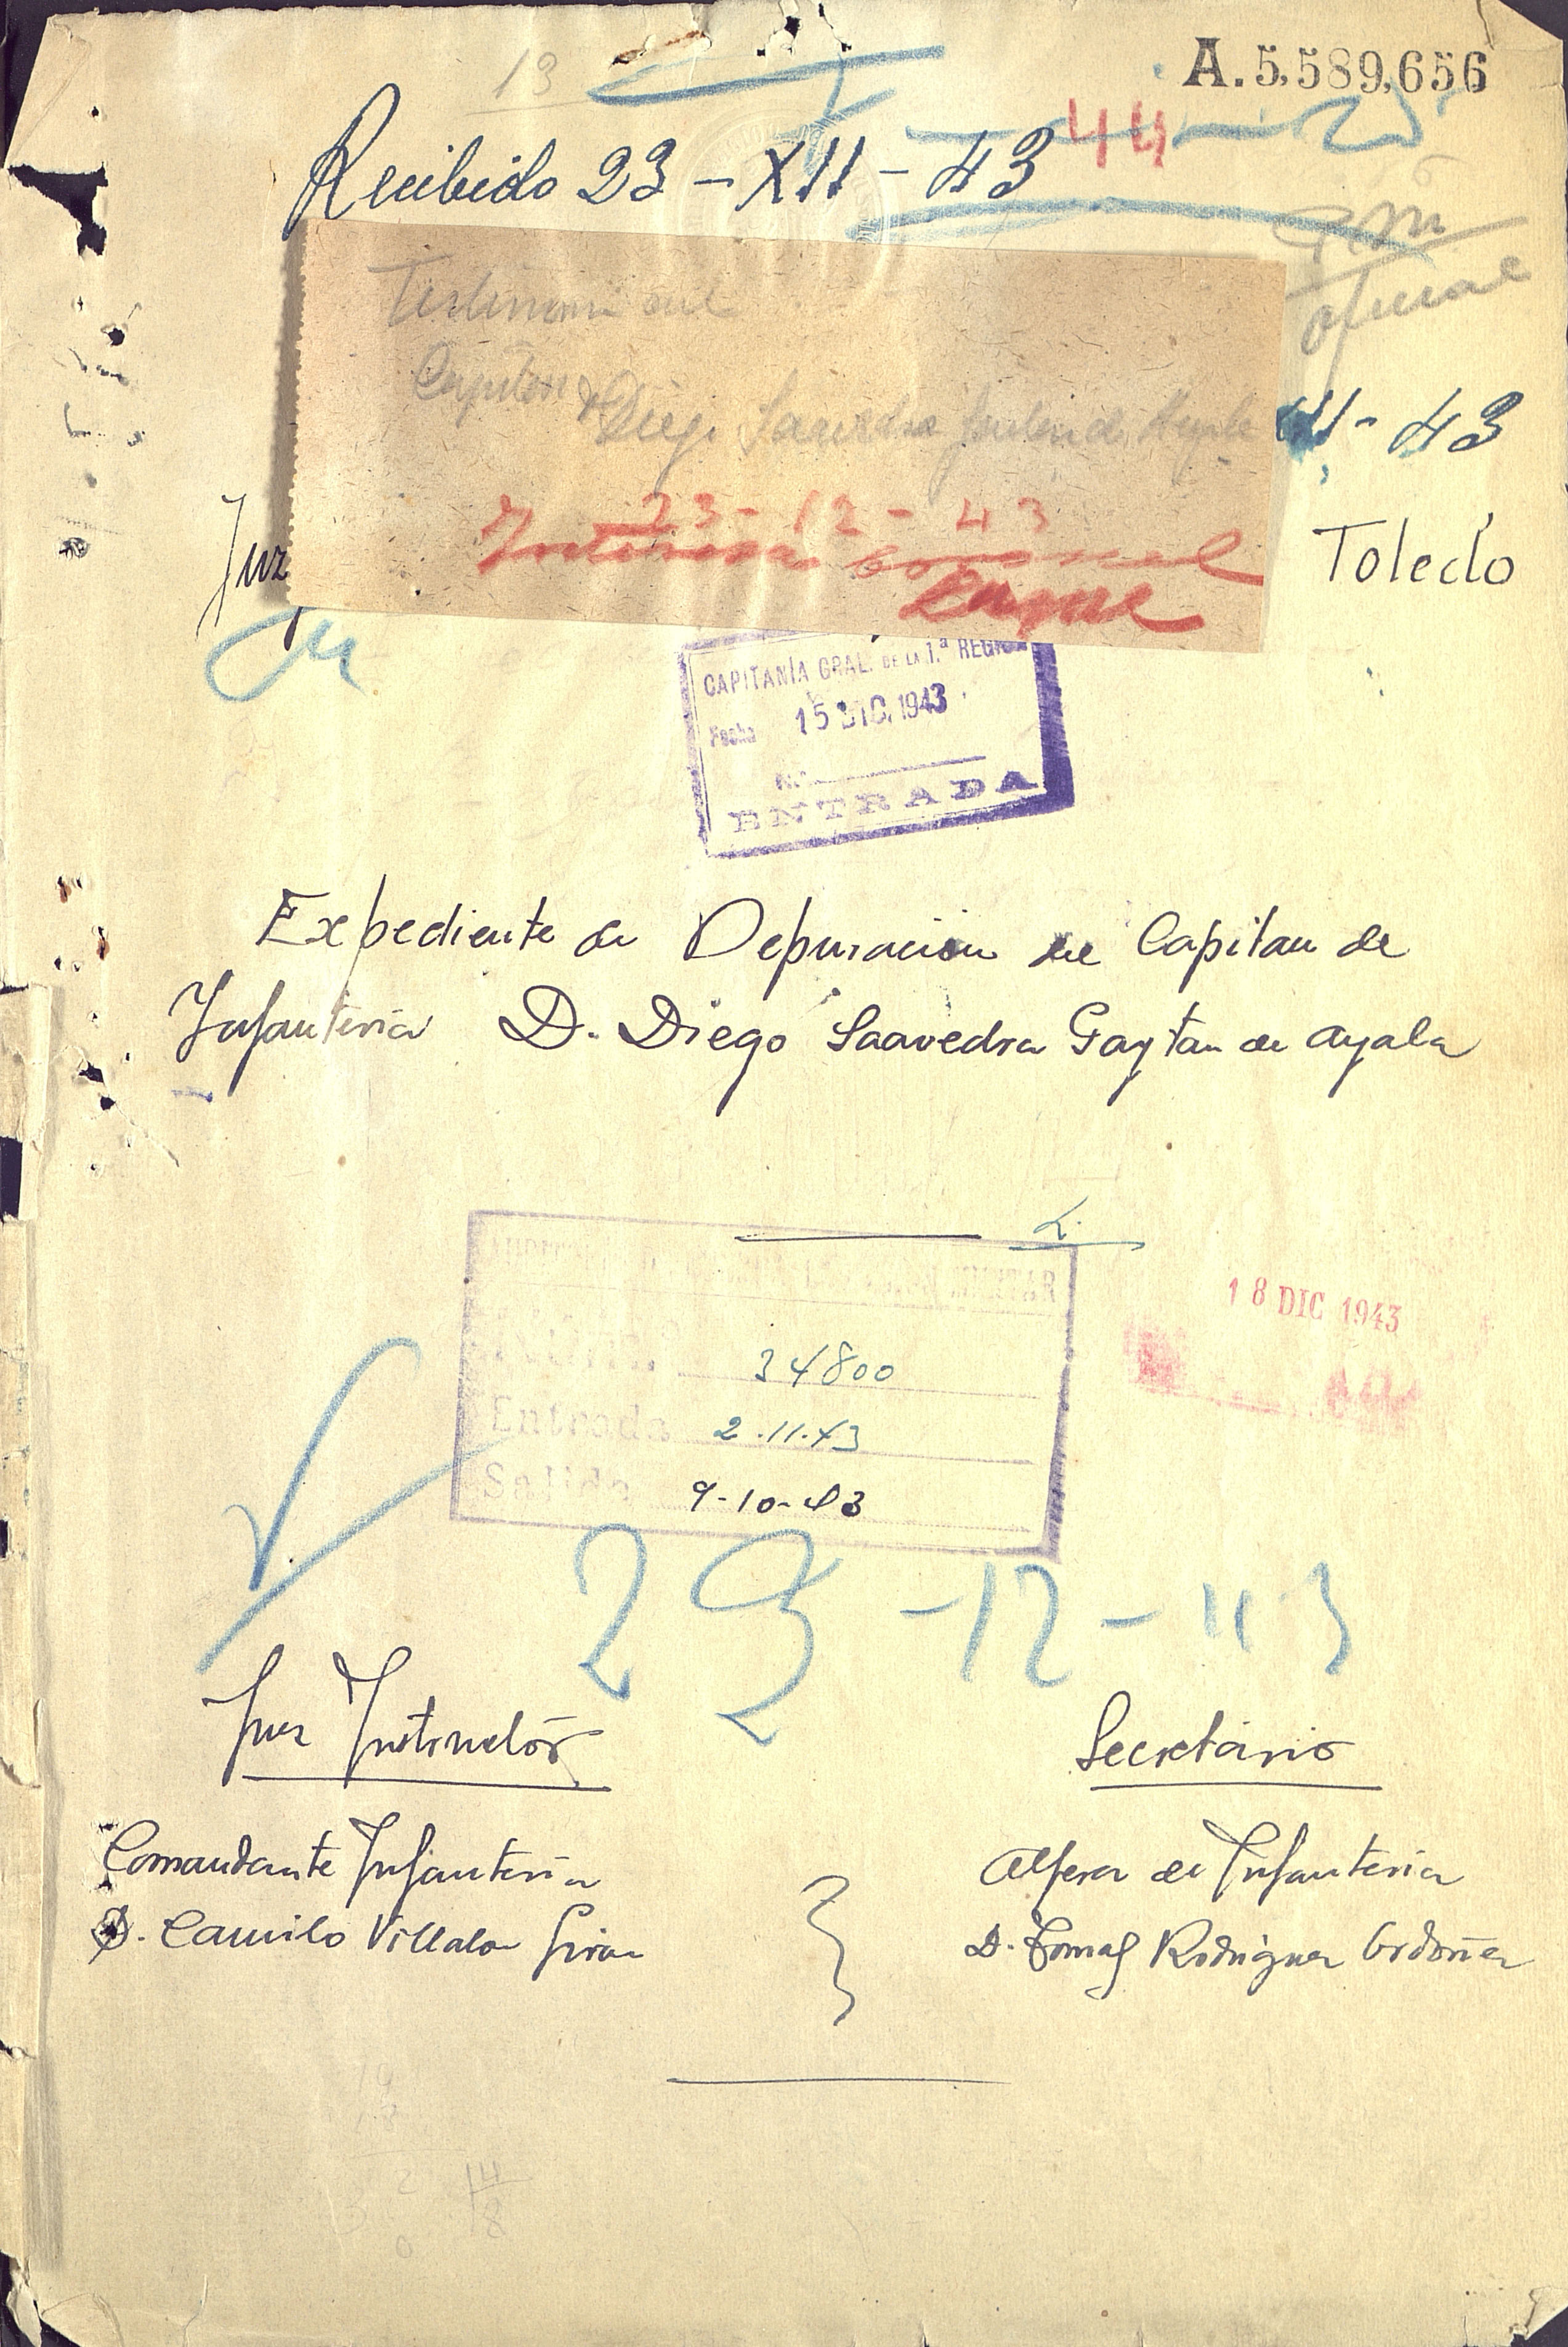 13
A.5,589,656
44
Recibido 23-XII-43
Testimonio del
Capitan D Diego Saavedra
11-43
23-12-43
Interesa Coronel
Juz
Toledo
CAPITANÍA GRAL. DE LA 1.ª REGIÓN
Fecha 15 DIC. 1943
N.º
ENTRADA
Expediente de Depuración del Capitan de
Infanteria D. Diego Saavedra Gaytan de Ayala
MILITAR
18 DIC 1943
34800
Entrada 2.11.43
Salida 9-10-43
23-12-43
Juez Instructór
Secretário
Comandante Infanteria
Alferez de Infanteria
D. Camilo Villalon Giron
D. Tomas Rodriguez Ordoñez
14
8